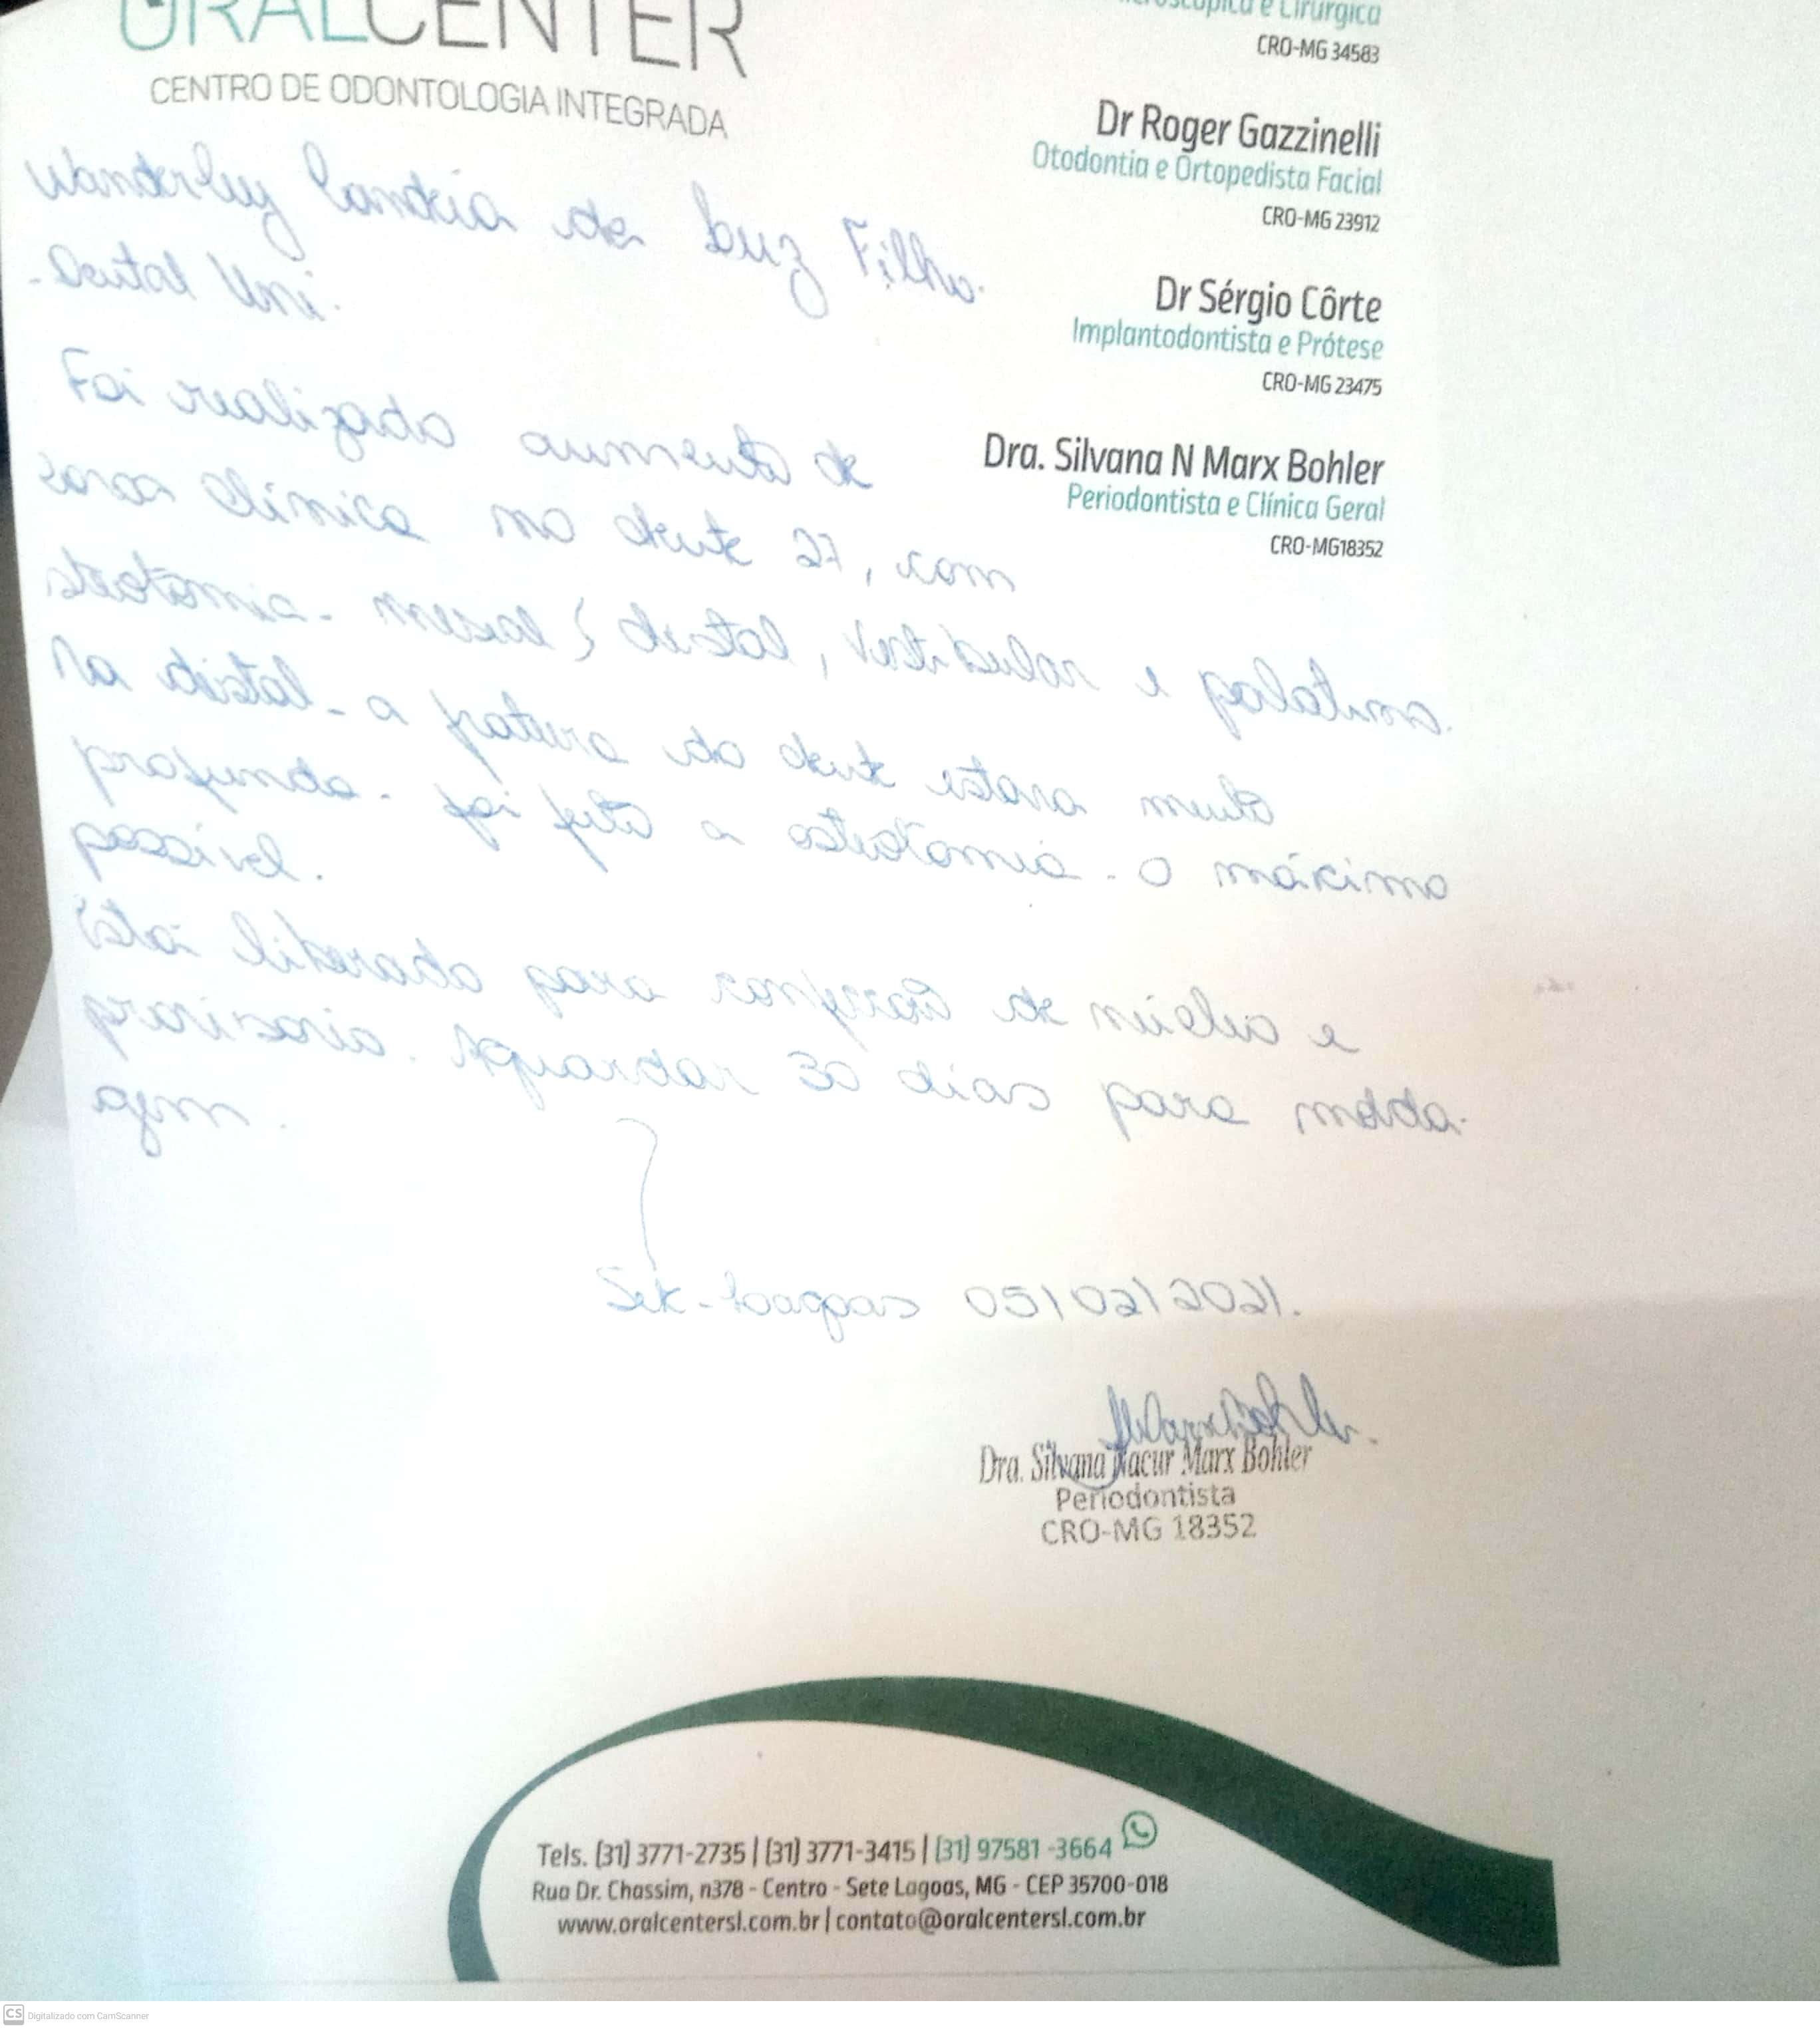 ORALCENTER
CENTRO DE ODONTOLOGIA INTEGRADA
e Cirúrgica
CRO-MG 34583
Dr Roger Gazzinelli
Otodontia e Ortopedista Facial
CRO-MG 23912
Dr Sérgio Côrte
Implantodontista e Prótese
CRO-MG 23475
Dra. Silvana N Marx Bohler
Periodontista e Clínica Geral
CRO-MG18352
Wanderley de Luz Filho.
- Dental Uni.
Foi realizado aumento de
coroa clínica no dente 27, com
osteotomia - mesial, distal, vestibular e palatina.
Na distal - a fratura do dente estava muito
profunda - foi feito a osteotomia - o máximo
possível.
Está liberado para confecção de núcleo e
provisorio. Aguardar 30 dias para molda-
gem.
Sete-Lagoas 05/02/2021.
Dra. Silvana Nacur Marx Bohler
Periodontista
CRO-MG 18352
Tels. (31) 3771-2735 | (31) 3771-3415 | (31) 97581-3664
Rua Dr. Chassim, n378 - Centro - Sete Lagoas, MG - CEP 35700-018
www.oralcentersl.com.br | contato@oralcentersl.com.br
CS Digitalizado com CamScanner